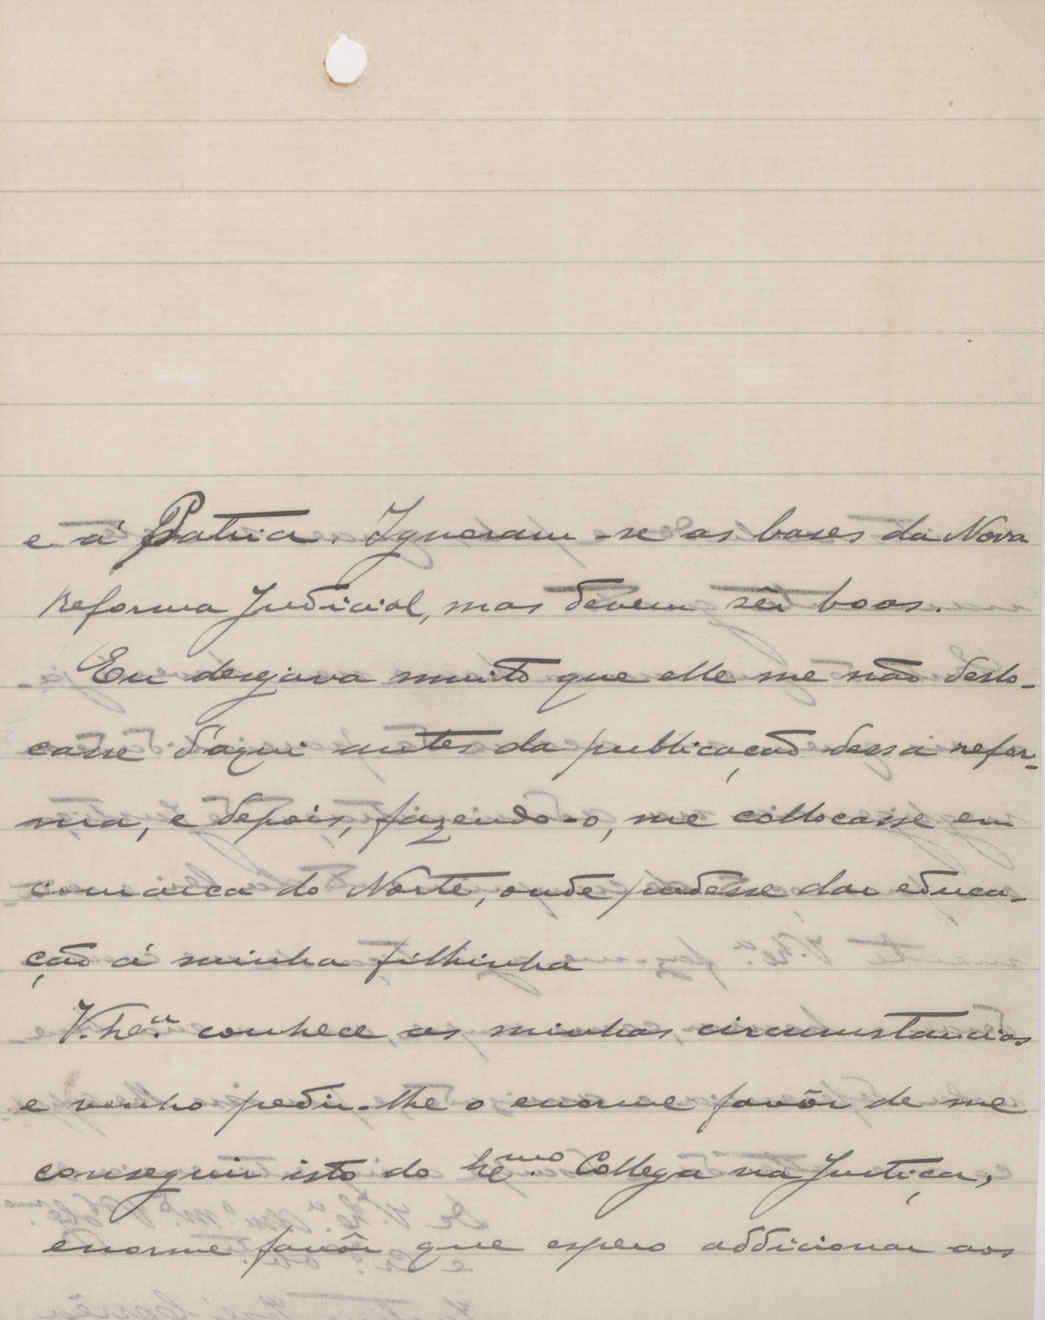 e á Patria. Ignoram-se as bases da Nova
Reforma Judicial, mas devem sêr boas.
Eu desejava muito que elle me não deslo-
casse d'aqui antes da publicação dessa refor-
ma, e depois, fazendo-o, me collocasse em
comarca do Norte, onde pudesse dar educa-
ção á minha filhinha
V. Ex.ª conhece as minhas circumstancias
e venho pedir-lhe o enorme favôr de me
conseguir isto do Ex.mo Collega na Justiça,
enorme favôr que espero addicionar aos